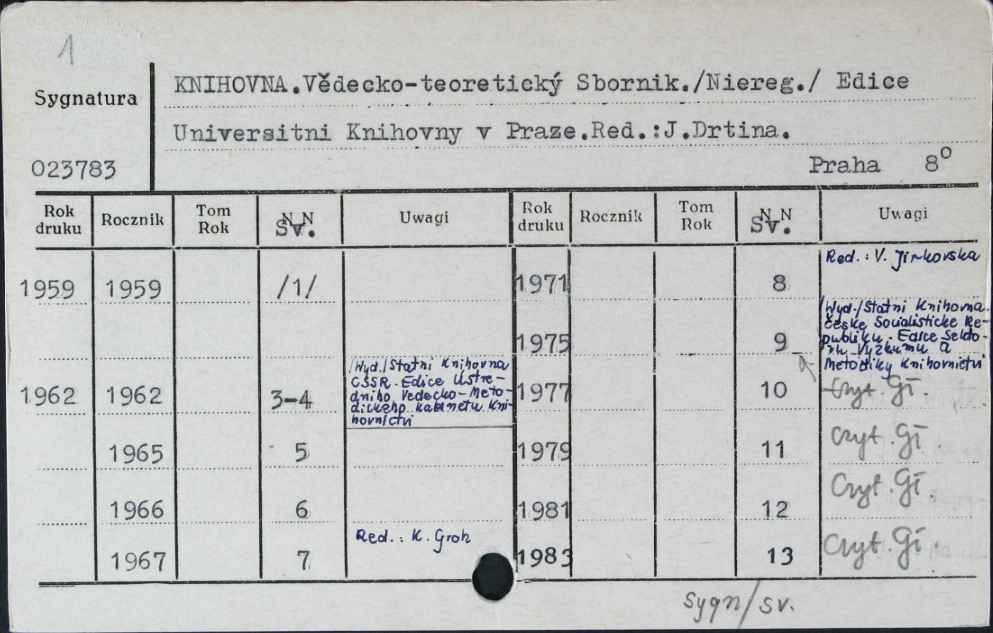 1
Sygnatura
023783
KNIHOVNA.Vědecko-teoretický Sbornik./Niereg./ Edice
Universitni Knihovny v Praze.Red.:J.Drtina.
Praha 8°
Rok druku Rocznik Tom Rok N N Sv. Uwagi Rok druku Rocznik Tom Rok N N Sv. Uwagi
1959 1959 /1/ 1971 8 Red.: V. Jirkovska
1975 9 /Wyd./Statni Knihovna
České Socialisticke Re-
publiky. Edice Sekto-
ru Vyzkumu a
Metodiky Knihovnictvi
1962 1962 3-4 /Wyd./Statni Knihovna
ČSSR. Edice Ustre-
dniho Vedecko-Meto-
dickeho kabinetu Kni-
hovnictvi
1977 10 Czyt. Gł.
1965 5 1979 11 Czyt. Gł.
1966 6 1981 12 Czyt. Gł.
1967 7 Red.: K. Groh 1983 13 Czyt. Gł.
sygn/sv.